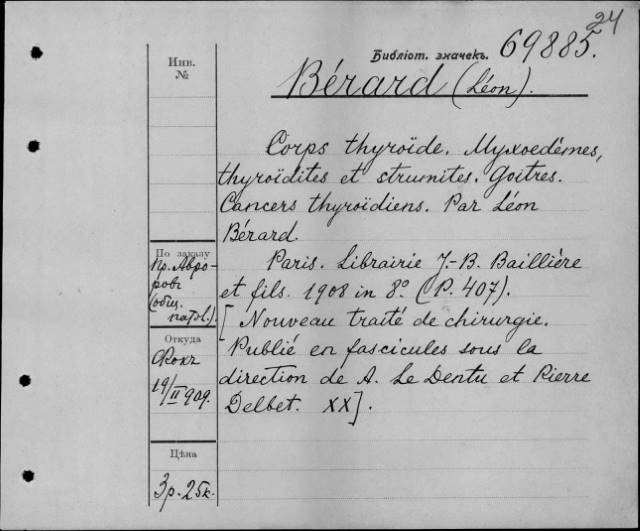 24
Библіот. значекъ. 69885.
Инв.
№
Bérard (Léon).
Corps thyroïde. Myxoedèmes,
thyroïdites et strumites. Goitres.
Cancers thyroïdiens. Par Léon
Bérard.
Paris. Librairie J.-B. Baillière
et fils. 1908 in 8° (P. 407).
[Nouveau traité de chirurgie.
Publié en fascicules sous la
direction de A. Le Dentu et Pierre
Delbet. XX].
По заказу
Пр. Авро-
ровъ
(общ.
патол).
Откуда
Фокъ
19/II 909.
Цѣна
3р.-25к.